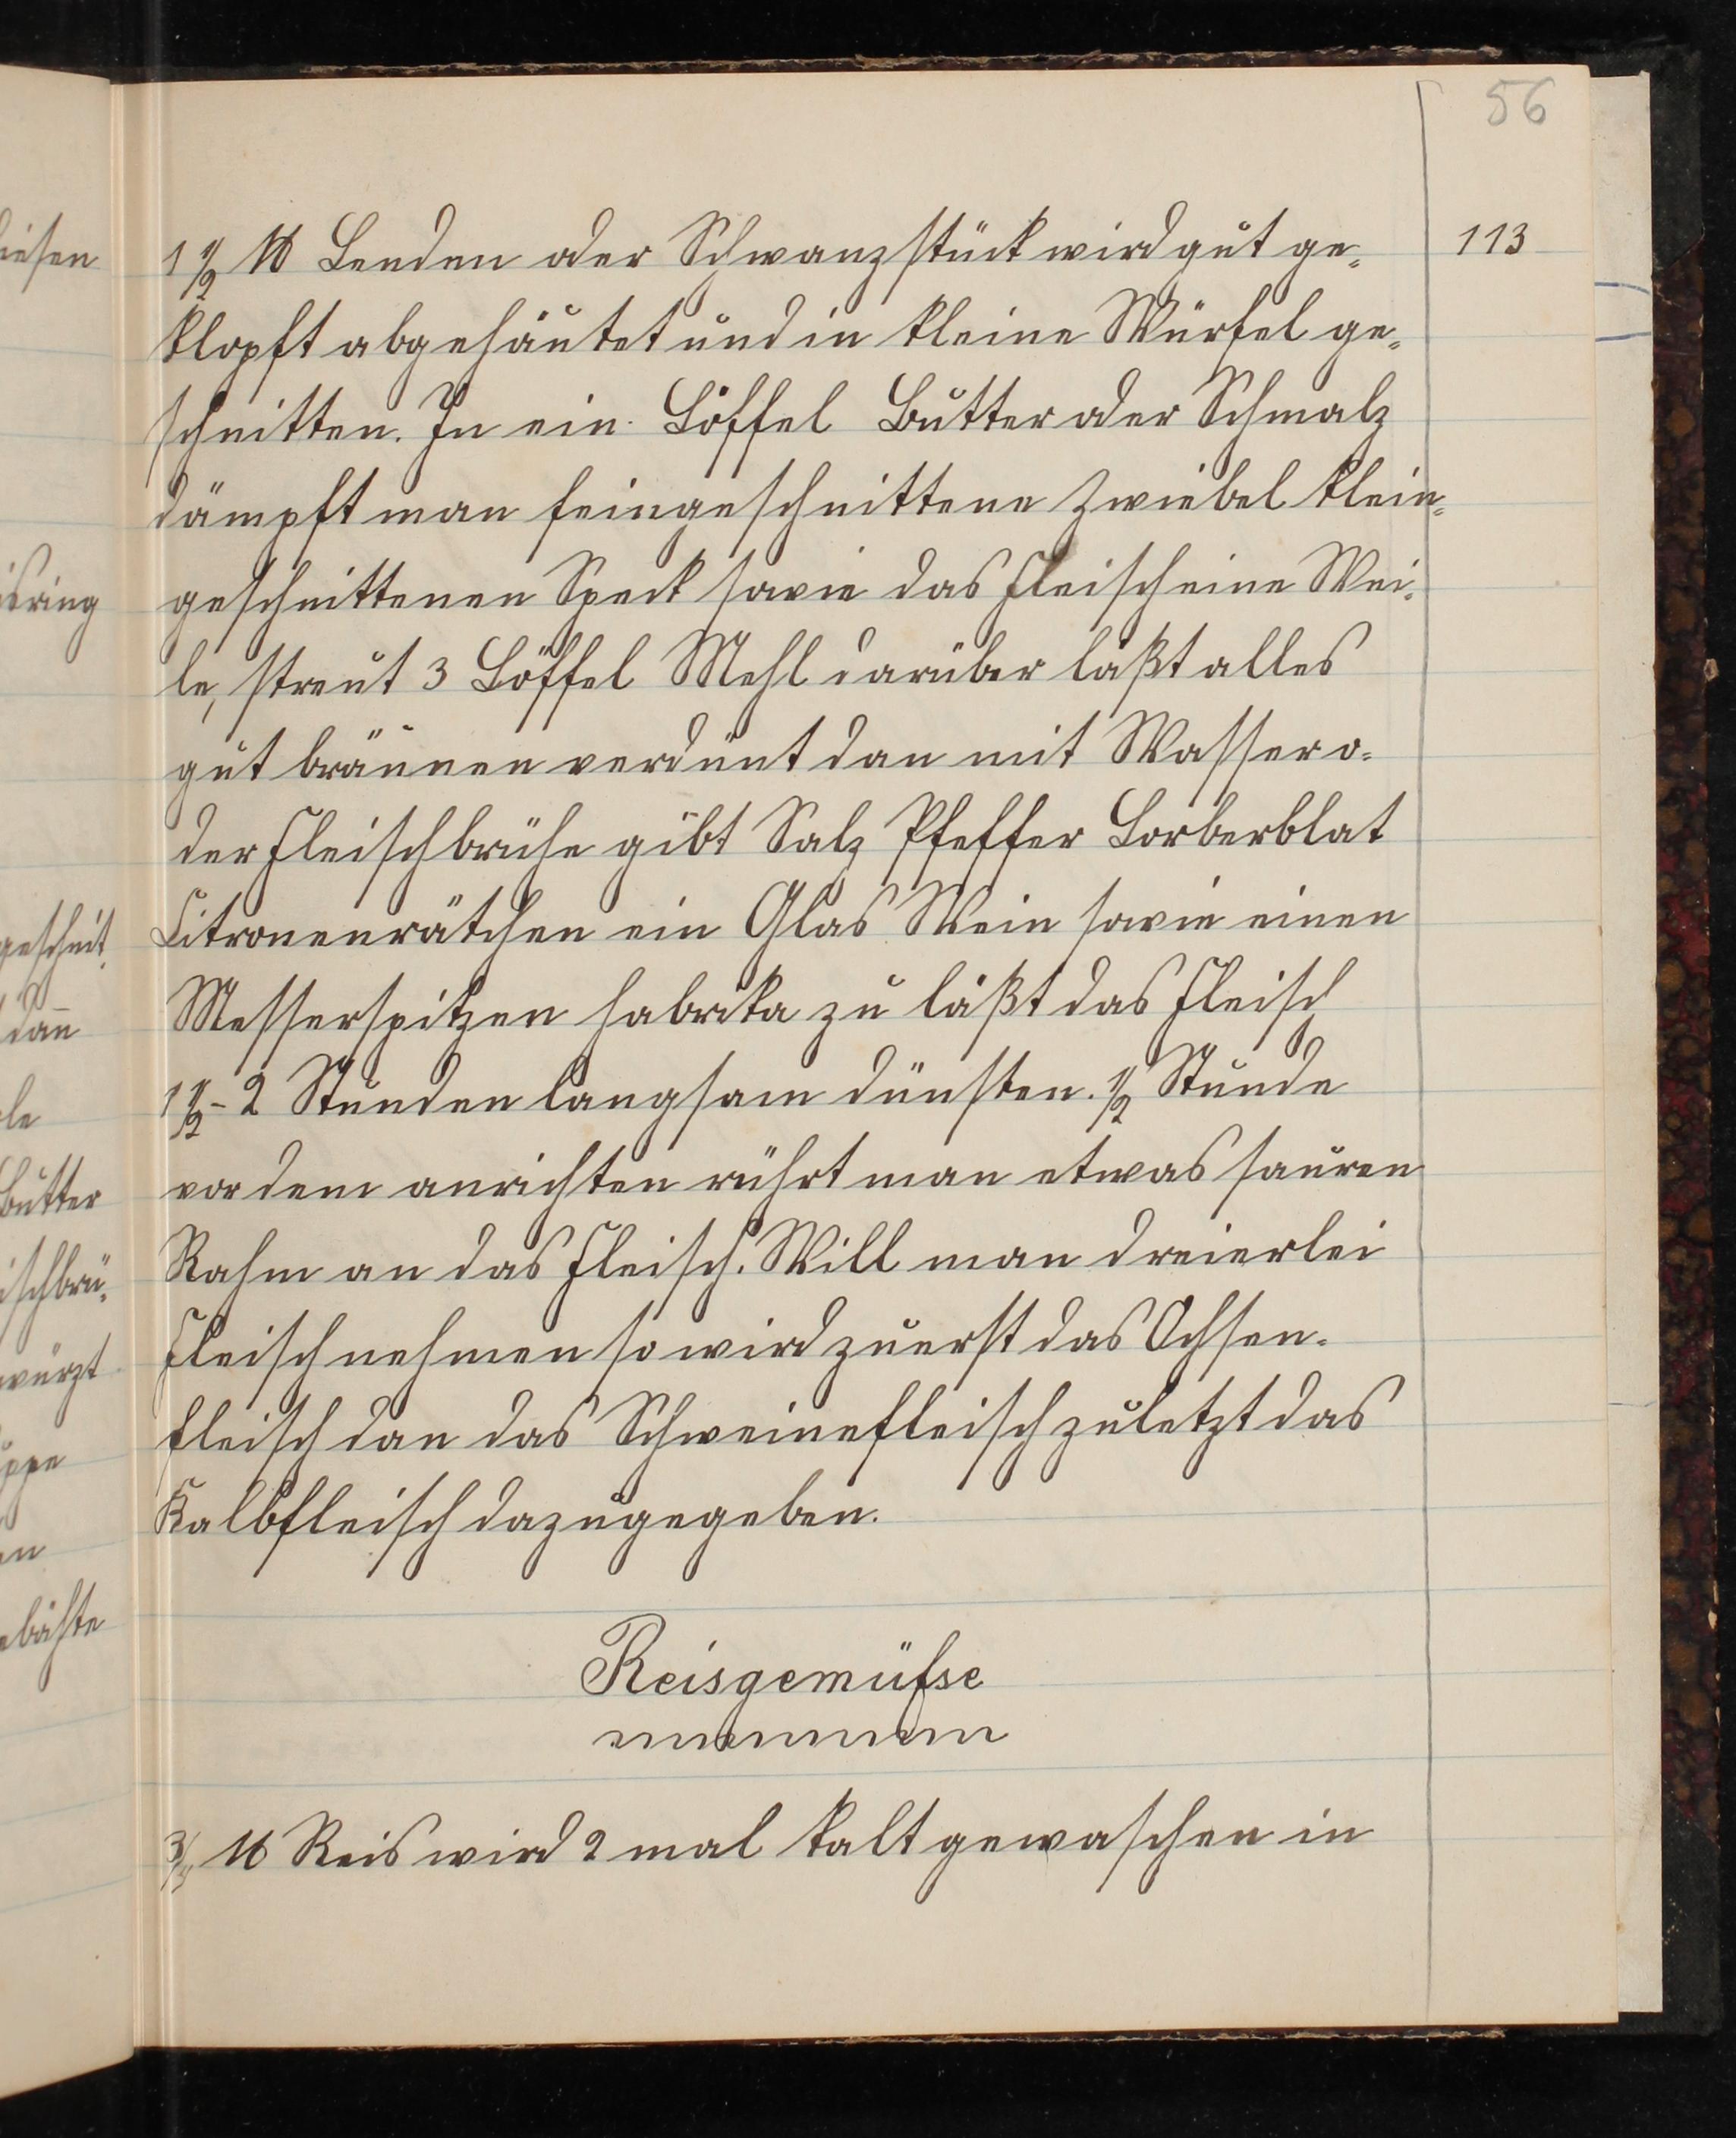 56
113
1 1/2 ℔ Lenden oder Schwanzstück wird gut ge-
klopft abgehäutet und in kleine Würfel ge-
schnitten. In ein. Löffel Butter oder Schmalz
dämpft man feingeschnittene Zwiebel klein-
geschnittenen Speck sowie das Fleisch eine Wei-
le, streut 3 Löffel Mehl darüber läßt alles
gut bräunen verdünt dan mit Wasser o-
der Fleischbrühe gibt Salz Pfeffer Lorberblat
Citronenrätchen ein Glas Wein sowie einen
Messerspitzen Pabrika zu läßt das Fleisch
1 1/2 - 2 Stunden langsam dünsten. 1/2 Stunde
vor dem anrichten rührt man etwas sauren
Rahm an das Fleisch. Will man dreierlei
Fleisch nehmen so wird zuerst das Ochsen-
fleisch dan das Schweinefleisch zuletzt das
Kalbfleisch dazugegeben.
Reisgemüse
℔ Reis wird 2 mal kalt gewaschen in